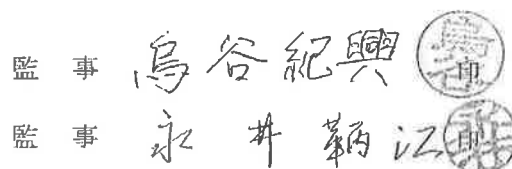 監事 烏谷紀興 印
監事 永井鞆江 印